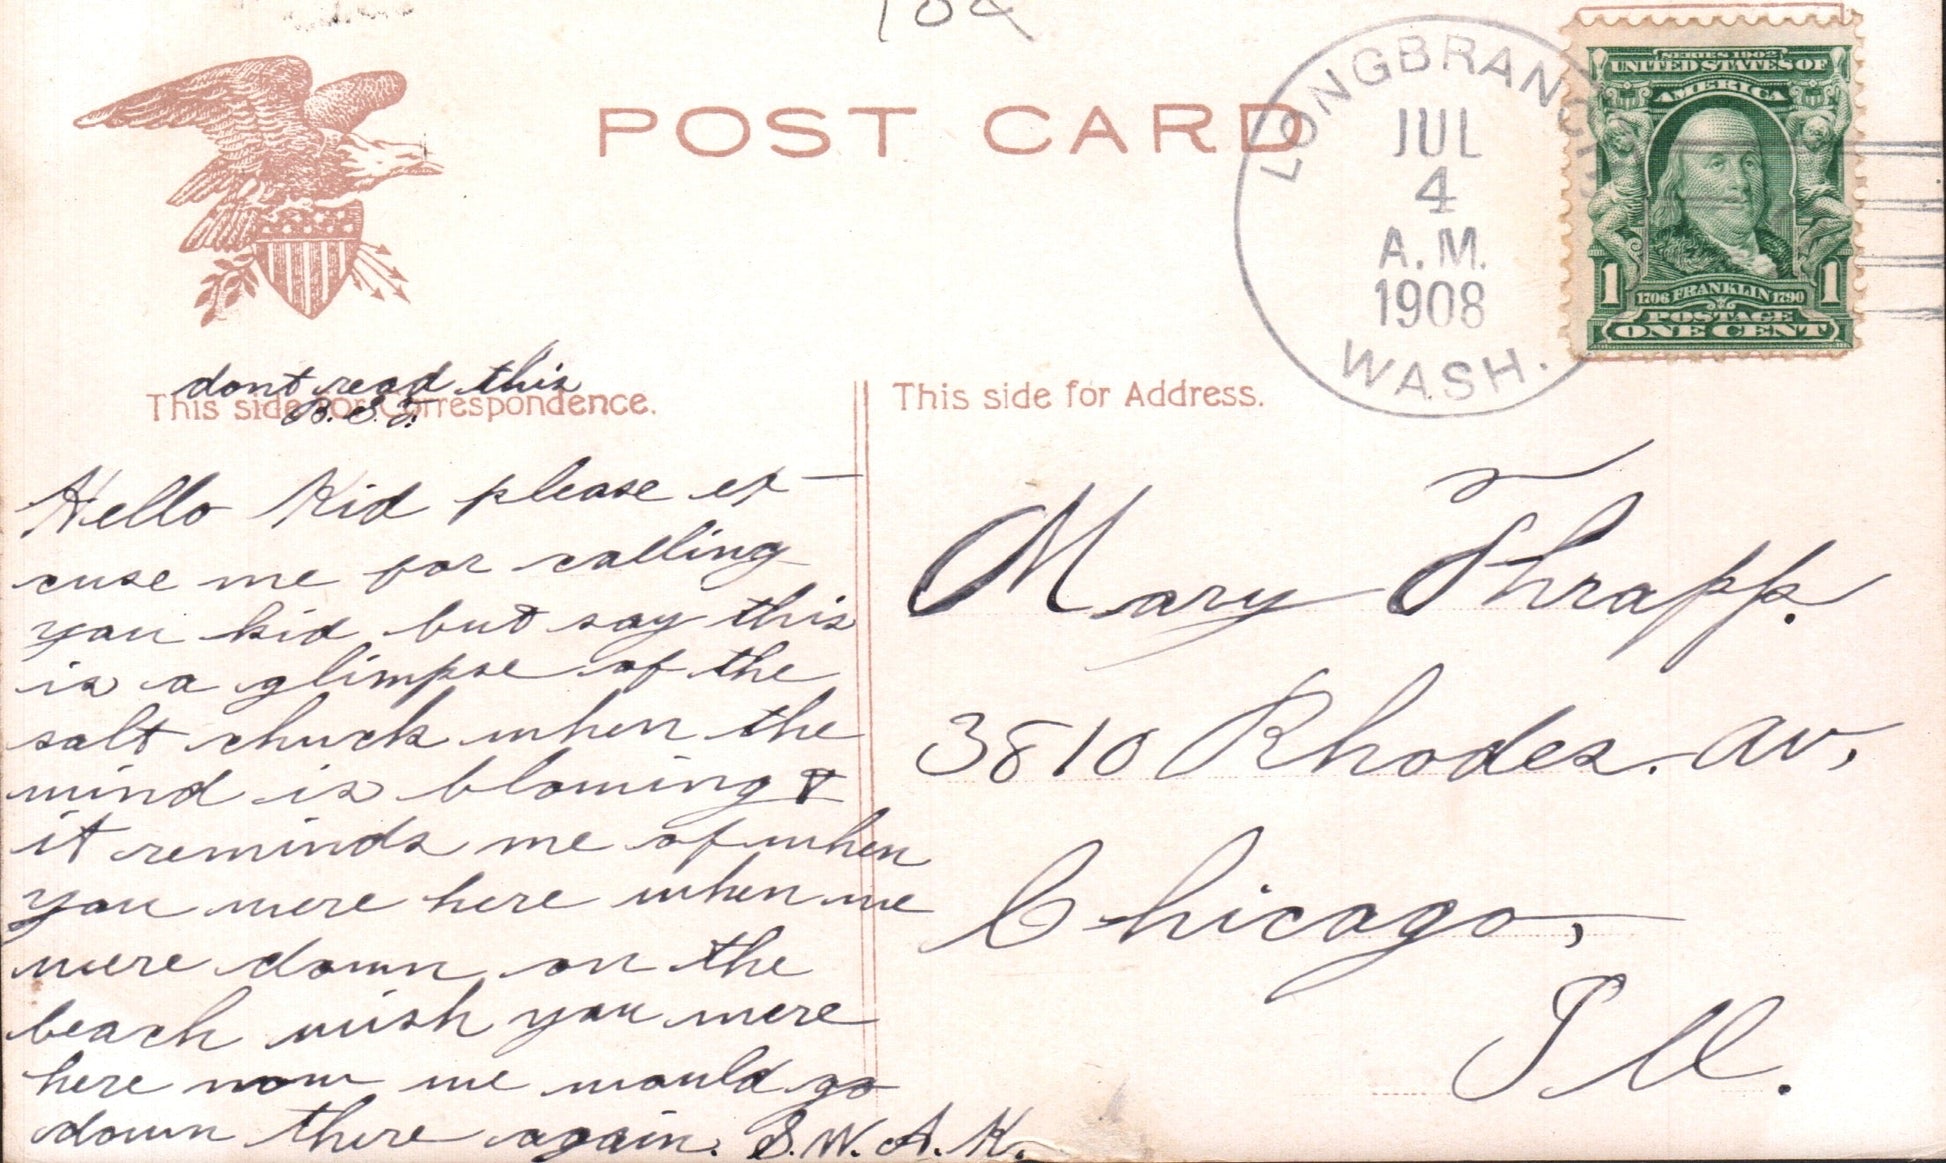 10¢
POST CARD
LONGBRANCH
JUL
4
A.M.
1908
WASH.
SERIES 1902
UNITED STATES OF
AMERICA
1 1
1706 FRANKLIN 1790
POSTAGE
ONE CENT
dont read this
This side for Correspondence.
This side for Address.
Hello Kid please ex-
cuse me for calling
you kid, but say this
is a glimpse of the
salt chuck when the
wind is blowing &
it reminds me of when
you were here when we
were down on the
beach wish you were
here now we would go
down there again. S.W.A.K.
Mary Thrapp.
3810 Rhodes. av,
Chicago,
Ill.